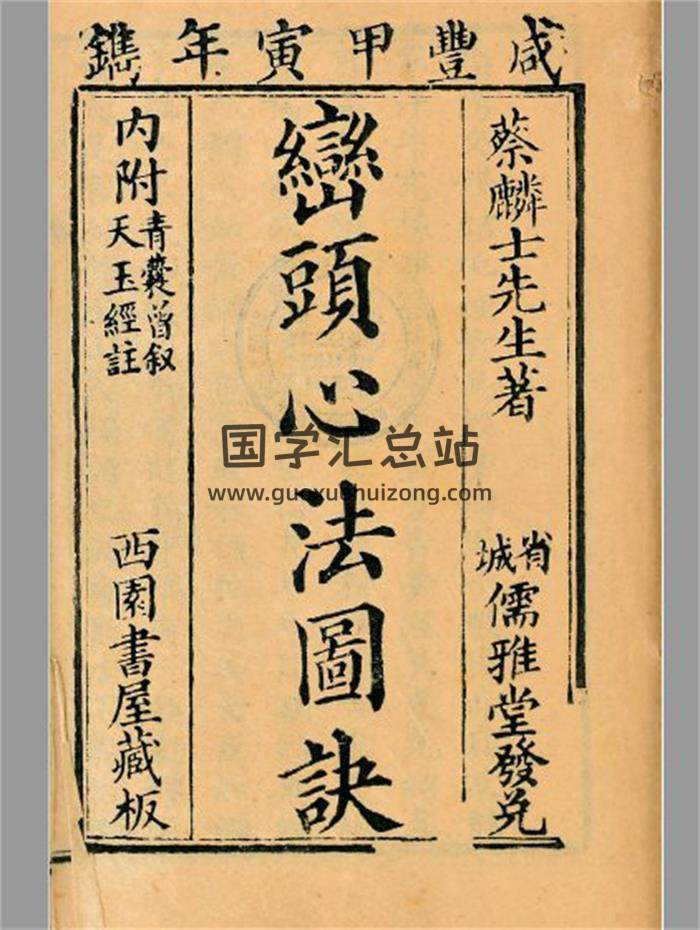 咸豐甲寅年鐫
蔡麟士先生著
省城儒雅堂發兑
巒頭心法圖訣
内附青囊曾叙天玉經註
西園書屋藏板
国学汇总站
www.guoxuehuizong.com